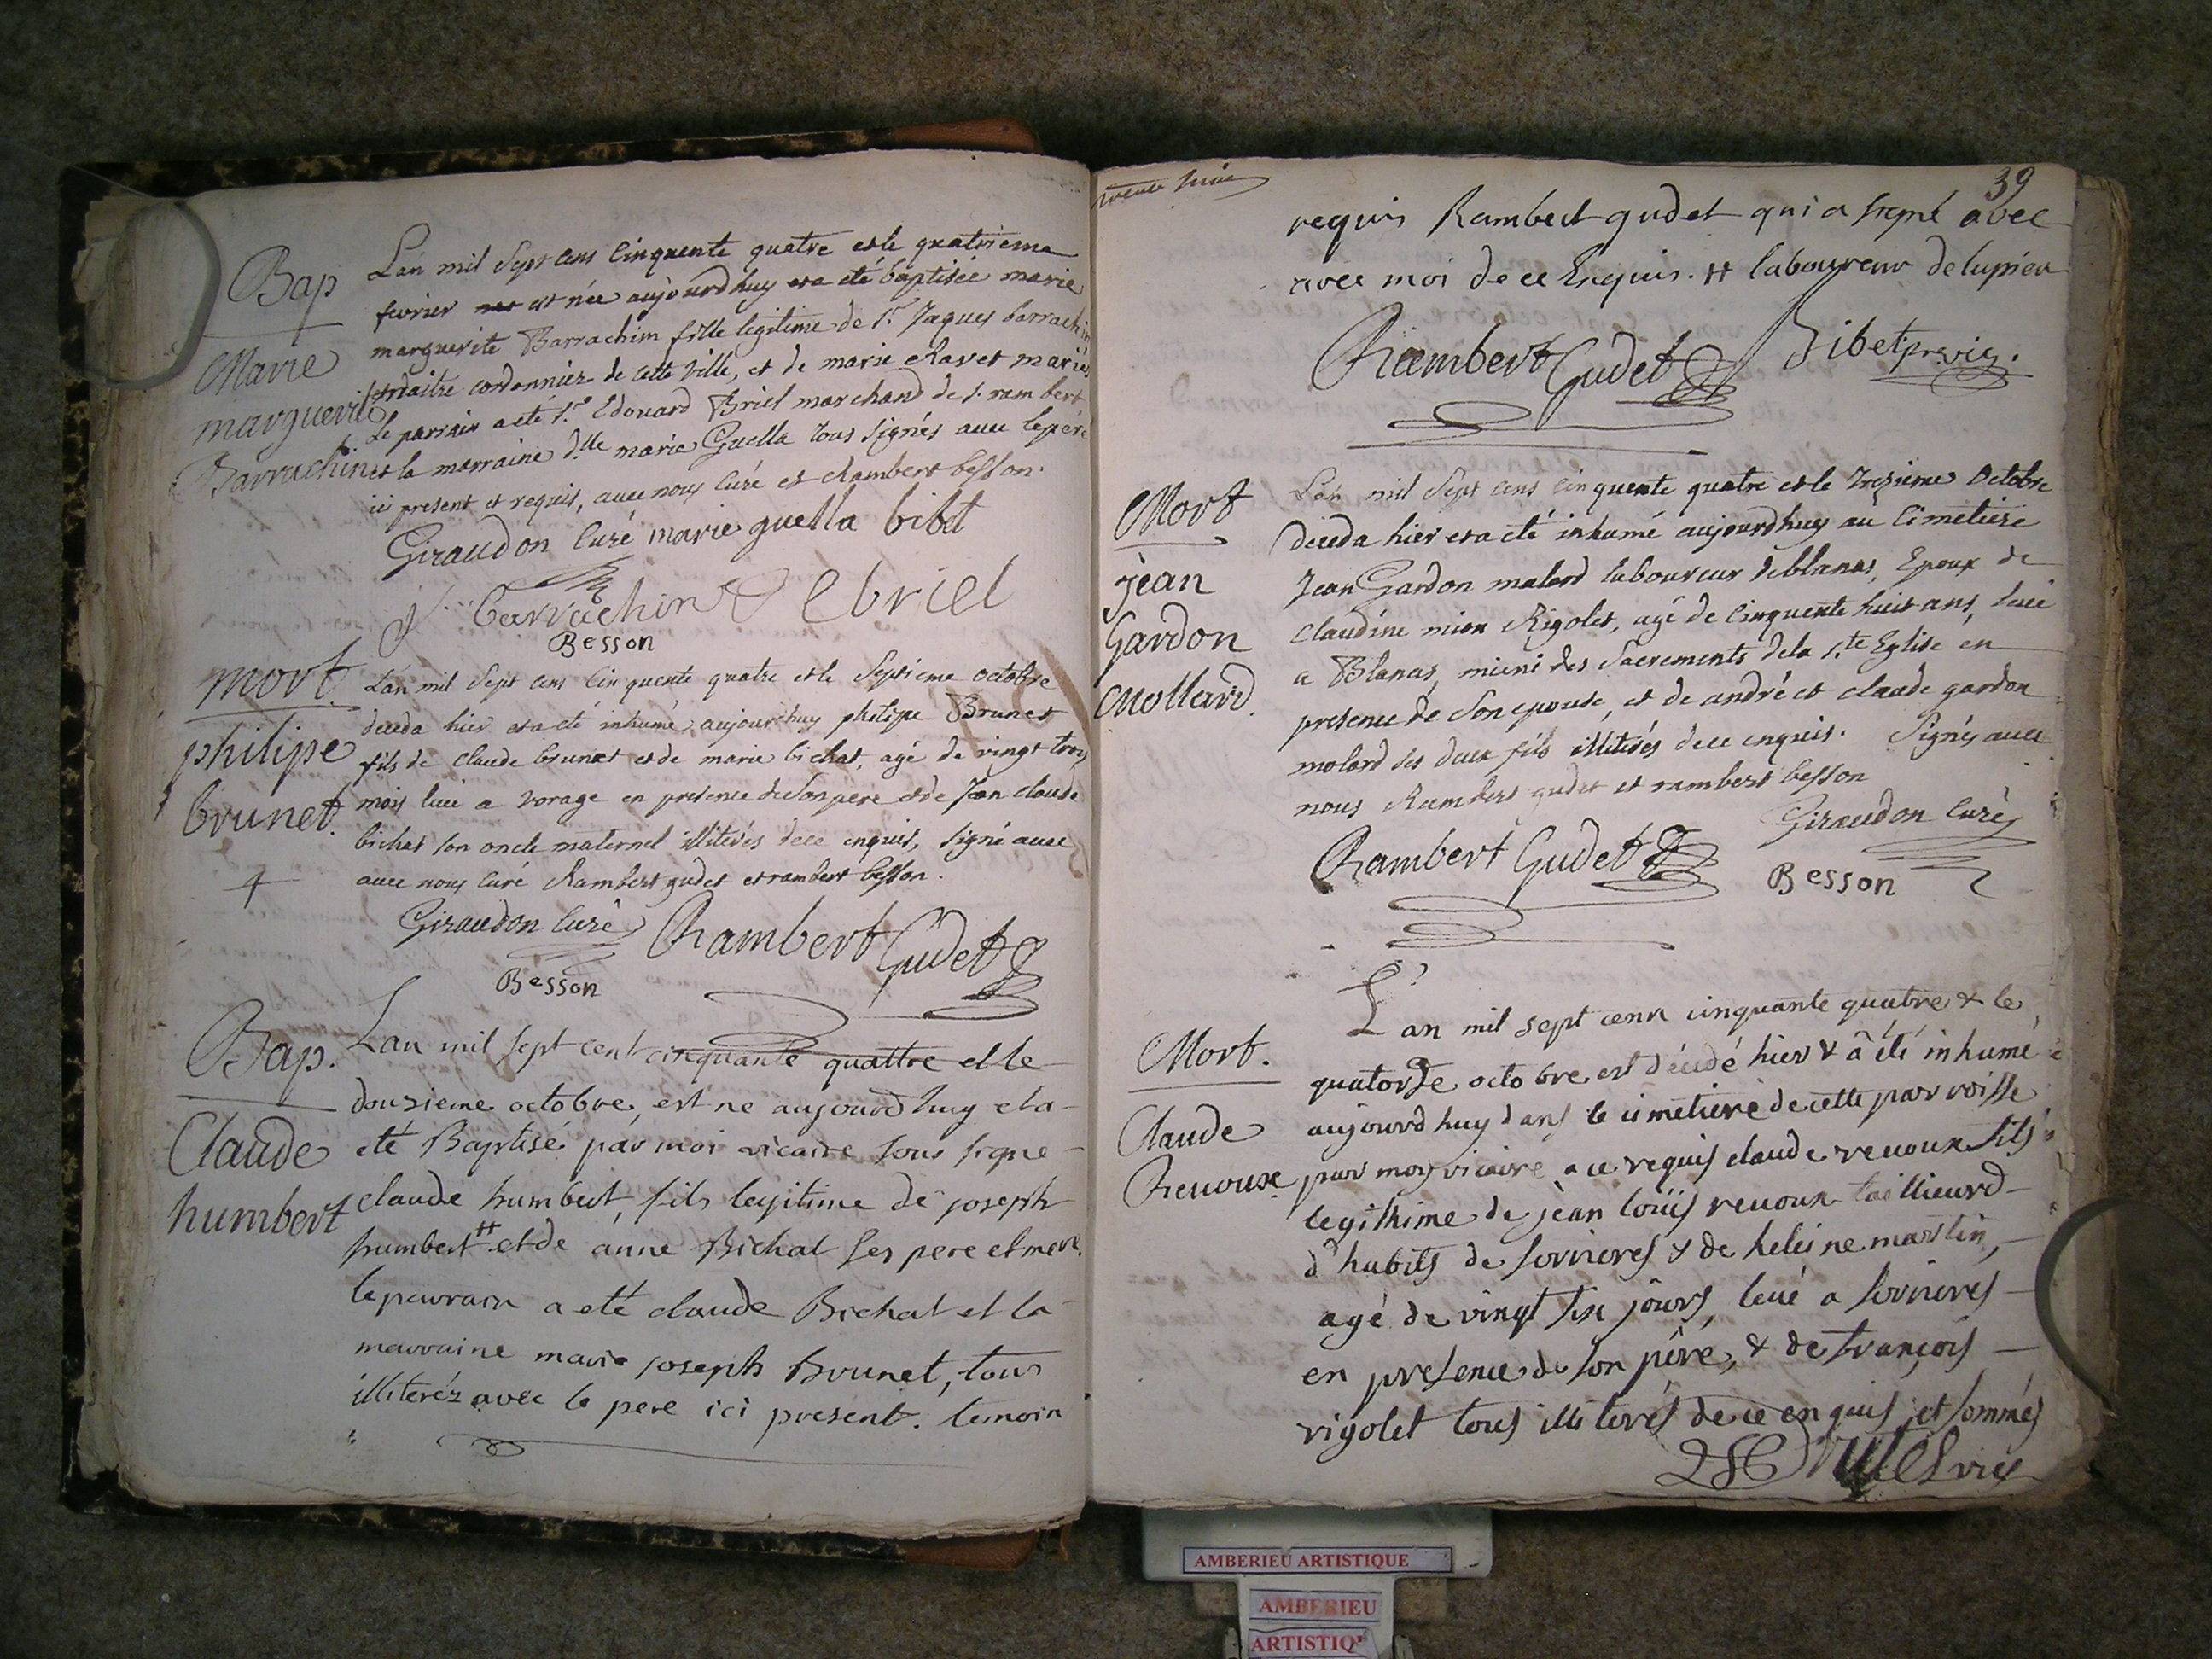 Bap
Marie
marguerite
Barrachin
L'an mil sept cens cinquente quatre et le quatrieme
fevrier est née aujourdhuy et a eté baptisée marie
marguerite Barrachin fille legitime de Sr Jaques barrachin
maitre cordonnier de cette ville, et de marie chavet mariés
le parrain a eté Sr Edouard Briel marchand de St rambert
et la marraine dlle marie Guella tous signés avec le pere
ici present et requis, avec nous curé et Rambert besson.
Giraudon curé marie guella bibet
barrachin Ebriel
Besson
mort
philipe
brunet.
L'an mil sept cens cinquente quatre et le septieme octobre
deceda hier et a eté inhumé aujourdhuy philipe Brunet
fils de claude brunet et de marie bichat, agé de vingt trois
mois levé a vorage en presence de son pere et de Jean claude
bichat son oncle maternel illiterés de ce enquis, signé avec
avec nous curé Rambert gudet et rambert besson.
Giraudon curé Rambert Gudet
Besson
Bap.
Claude
humbert
L'an mil sept cent cinquante quattre et le
douzieme octobre, est ne aujourdhuy et a
eté Baptisé par moi vicaire sous signe
claude humbert, fils legitime de joseph
humbert # et de anne Bichat ses pere et mere.
le parrain a eté claude Bichat et la
marraine marie joseph Brunet, tous
illiteréz avec le pere ici present. temoin
39
requis Rambert gudet qui a signé avec
avec moi de ce Enquis. # laboureur de lupieu
Rambert Gudet Bibet pr vic.
Mort
jean
Gardon
Mollard.
L'an mil sept cens cinquente quatre et le treizieme octobre
deceda hier et a eté inhumé aujourdhuy au cimetiere
Jean Gardon molard laboureur de blanas, Epoux de
Claudine mion Rigolet, agé de cinquente huit ans, levé
a Blanas, muni des Sacrements de la Ste Eglise en
presence de son epouse, et de andré et claude gardon
molard ses deux fils illiterés de ce enquis. Signés avec
nous Rambert gudet et rambert besson
Giraudon curé
Rambert Gudet
Besson
Mort.
Claude
Revoux
L'an mil sept cens cinquante quatre & le
quatorze octobre est décédé hier & a été inhumé
aujourdhuy dans le cimetiere de cette parroisse
par moy vicaire a ce requis claude revoux fils
legithime de jean loüis revoux taillieurd
d'habits de sorrieres & de heleine martin,
agé de vingt six jours, levé a sorrieres
en presence de son père, & de françois
rigolet tous illiterés de ce enquis et sommés
vic
AMBERIEU ARTISTIQUE
AMBERIEU
ARTISTIQ